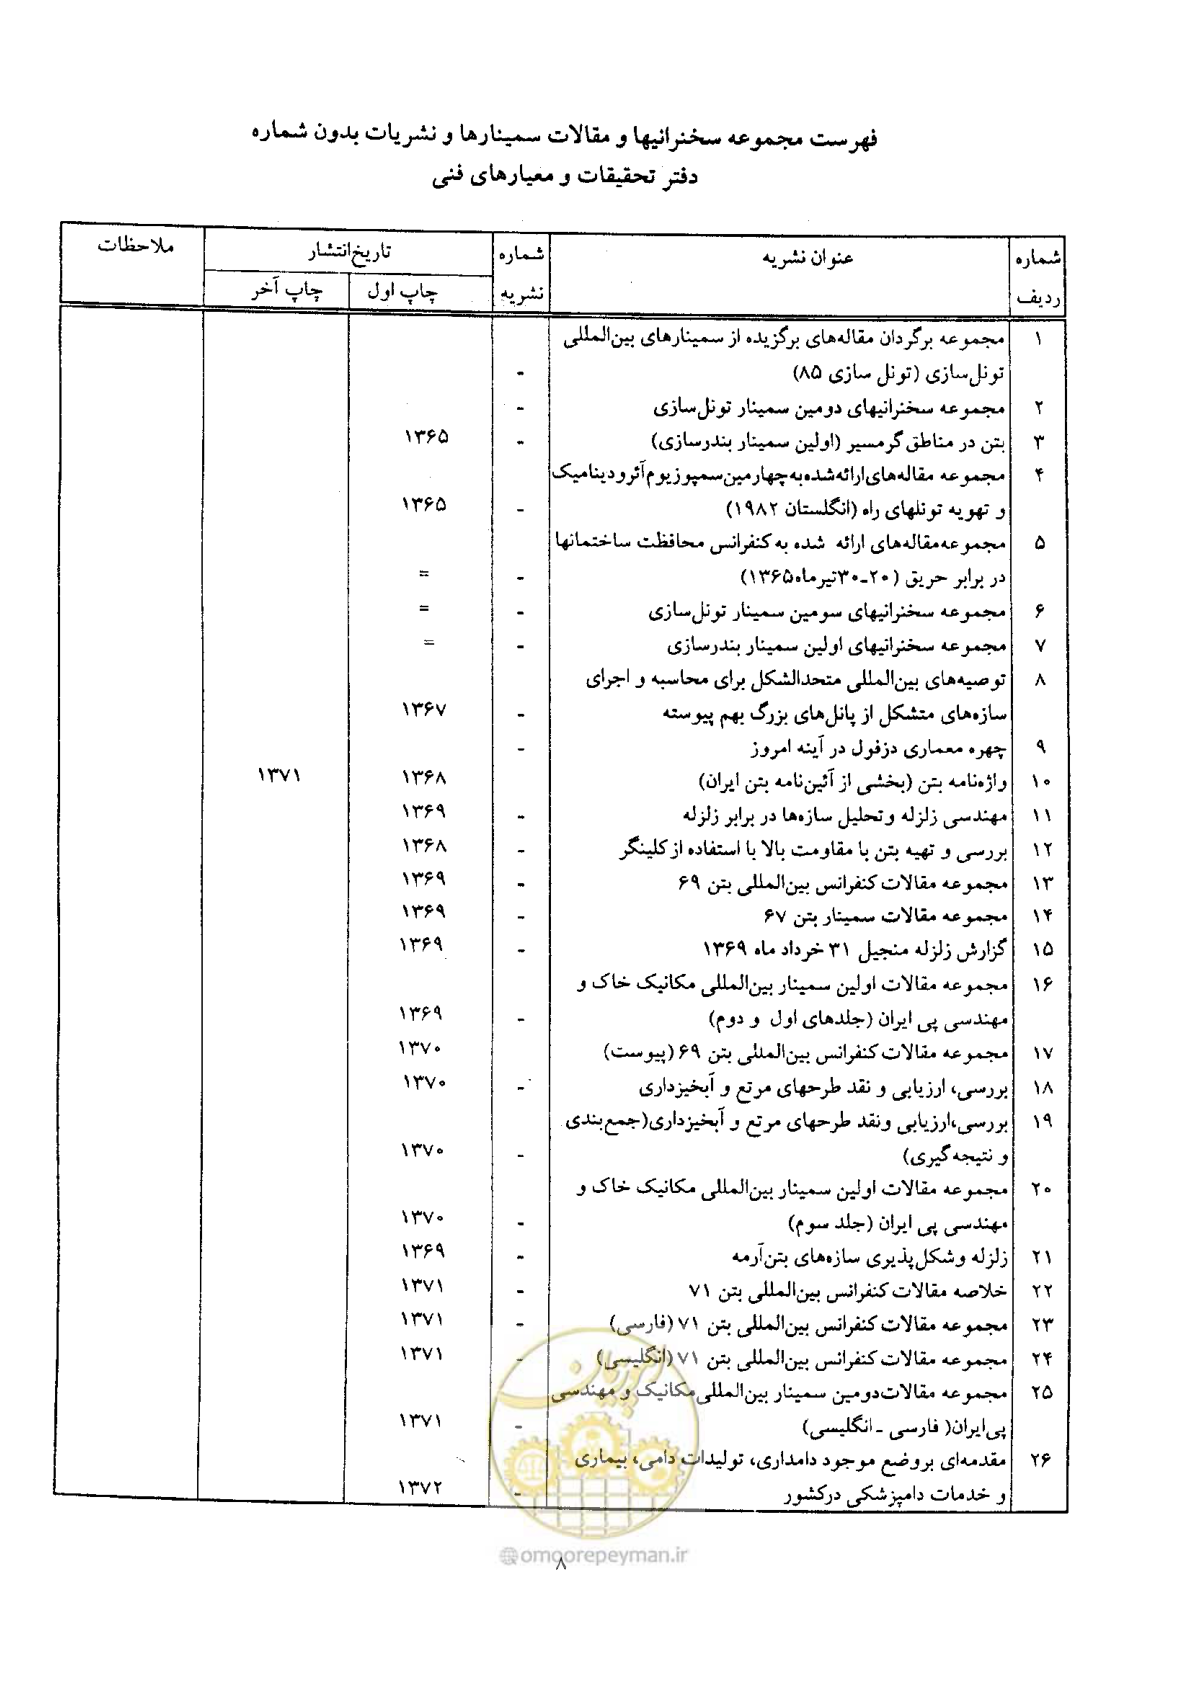 فهرست مجموعه سخنرانیها و مقالات سمینارها و نشریات بدون شماره
دفتر تحقیقات و معیارهای فنی
شماره ردیف | عنوان نشریه | شماره نشریه | تاریخ انتشار | ملاحظات
چاپ اول | چاپ آخر
۱ مجموعه برگردان مقاله‌های برگزیده از سمینارهای بین‌المللی
تونل‌سازی (تونل سازی ۸۵) -
۲ مجموعه سخنرانیهای دومین سمینار تونل‌سازی -
۳ بتن در مناطق گرمسیر (اولین سمینار بندرسازی) - ۱۳۶۵
۴ مجموعه مقاله‌های ارائه شده به چهارمین سمپوزیوم آئرودینامیک
و تهویه تونلهای راه (انگلستان ۱۹۸۲) - ۱۳۶۵
۵ مجموعه مقاله‌های ارائه شده به کنفرانس محافظت ساختمانها
در برابر حریق (۲۰-۳۰ تیرماه ۱۳۶۵) - =
۶ مجموعه سخنرانیهای سومین سمینار تونل‌سازی - =
۷ مجموعه سخنرانیهای اولین سمینار بندرسازی - =
۸ توصیه‌های بین‌المللی متحدالشکل برای محاسبه و اجرای
سازه‌های متشکل از پانل‌های بزرگ بهم پیوسته - ۱۳۶۷
۹ چهره معماری دزفول در آینه امروز -
۱۰ واژه‌نامه بتن (بخشی از آئین‌نامه بتن ایران) ۱۳۶۸ ۱۳۷۱
۱۱ مهندسی زلزله و تحلیل سازه‌ها در برابر زلزله - ۱۳۶۹
۱۲ بررسی و تهیه بتن با مقاومت بالا با استفاده از کلینگر - ۱۳۶۸
۱۳ مجموعه مقالات کنفرانس بین‌المللی بتن ۶۹ - ۱۳۶۹
۱۴ مجموعه مقالات سمینار بتن ۶۷ - ۱۳۶۹
۱۵ گزارش زلزله منجیل ۳۱ خرداد ماه ۱۳۶۹ - ۱۳۶۹
۱۶ مجموعه مقالات اولین سمینار بین‌المللی مکانیک خاک و
مهندسی پی ایران (جلدهای اول و دوم) - ۱۳۶۹
۱۷ مجموعه مقالات کنفرانس بین‌المللی بتن ۶۹ (پیوست) ۱۳۷۰
۱۸ بررسی، ارزیابی و نقد طرحهای مرتع و آبخیزداری - ۱۳۷۰
۱۹ بررسی، ارزیابی ونقد طرحهای مرتع و آبخیزداری (جمع‌بندی
و نتیجه‌گیری) - ۱۳۷۰
۲۰ مجموعه مقالات اولین سمینار بین‌المللی مکانیک خاک و
مهندسی پی ایران (جلد سوم) - ۱۳۷۰
۲۱ زلزله و شکل‌پذیری سازه‌های بتن‌آرمه - ۱۳۶۹
۲۲ خلاصه مقالات کنفرانس بین‌المللی بتن ۷۱ - ۱۳۷۱
۲۳ مجموعه مقالات کنفرانس بین‌المللی بتن ۷۱ (فارسی) - ۱۳۷۱
۲۴ مجموعه مقالات کنفرانس بین‌المللی بتن ۷۱ (انگلیسی) - ۱۳۷۱
۲۵ مجموعه مقالات دومین سمینار بین‌المللی مکانیک و مهندسی
پی‌ایران (فارسی - انگلیسی) - ۱۳۷۱
۲۶ مقدمه‌ای بروضع موجود دامداری، تولیدات دامی، بیماری
و خدمات دامپزشکی درکشور - ۱۳۷۲
امورپیمان
@omoorepeyman.ir
۸